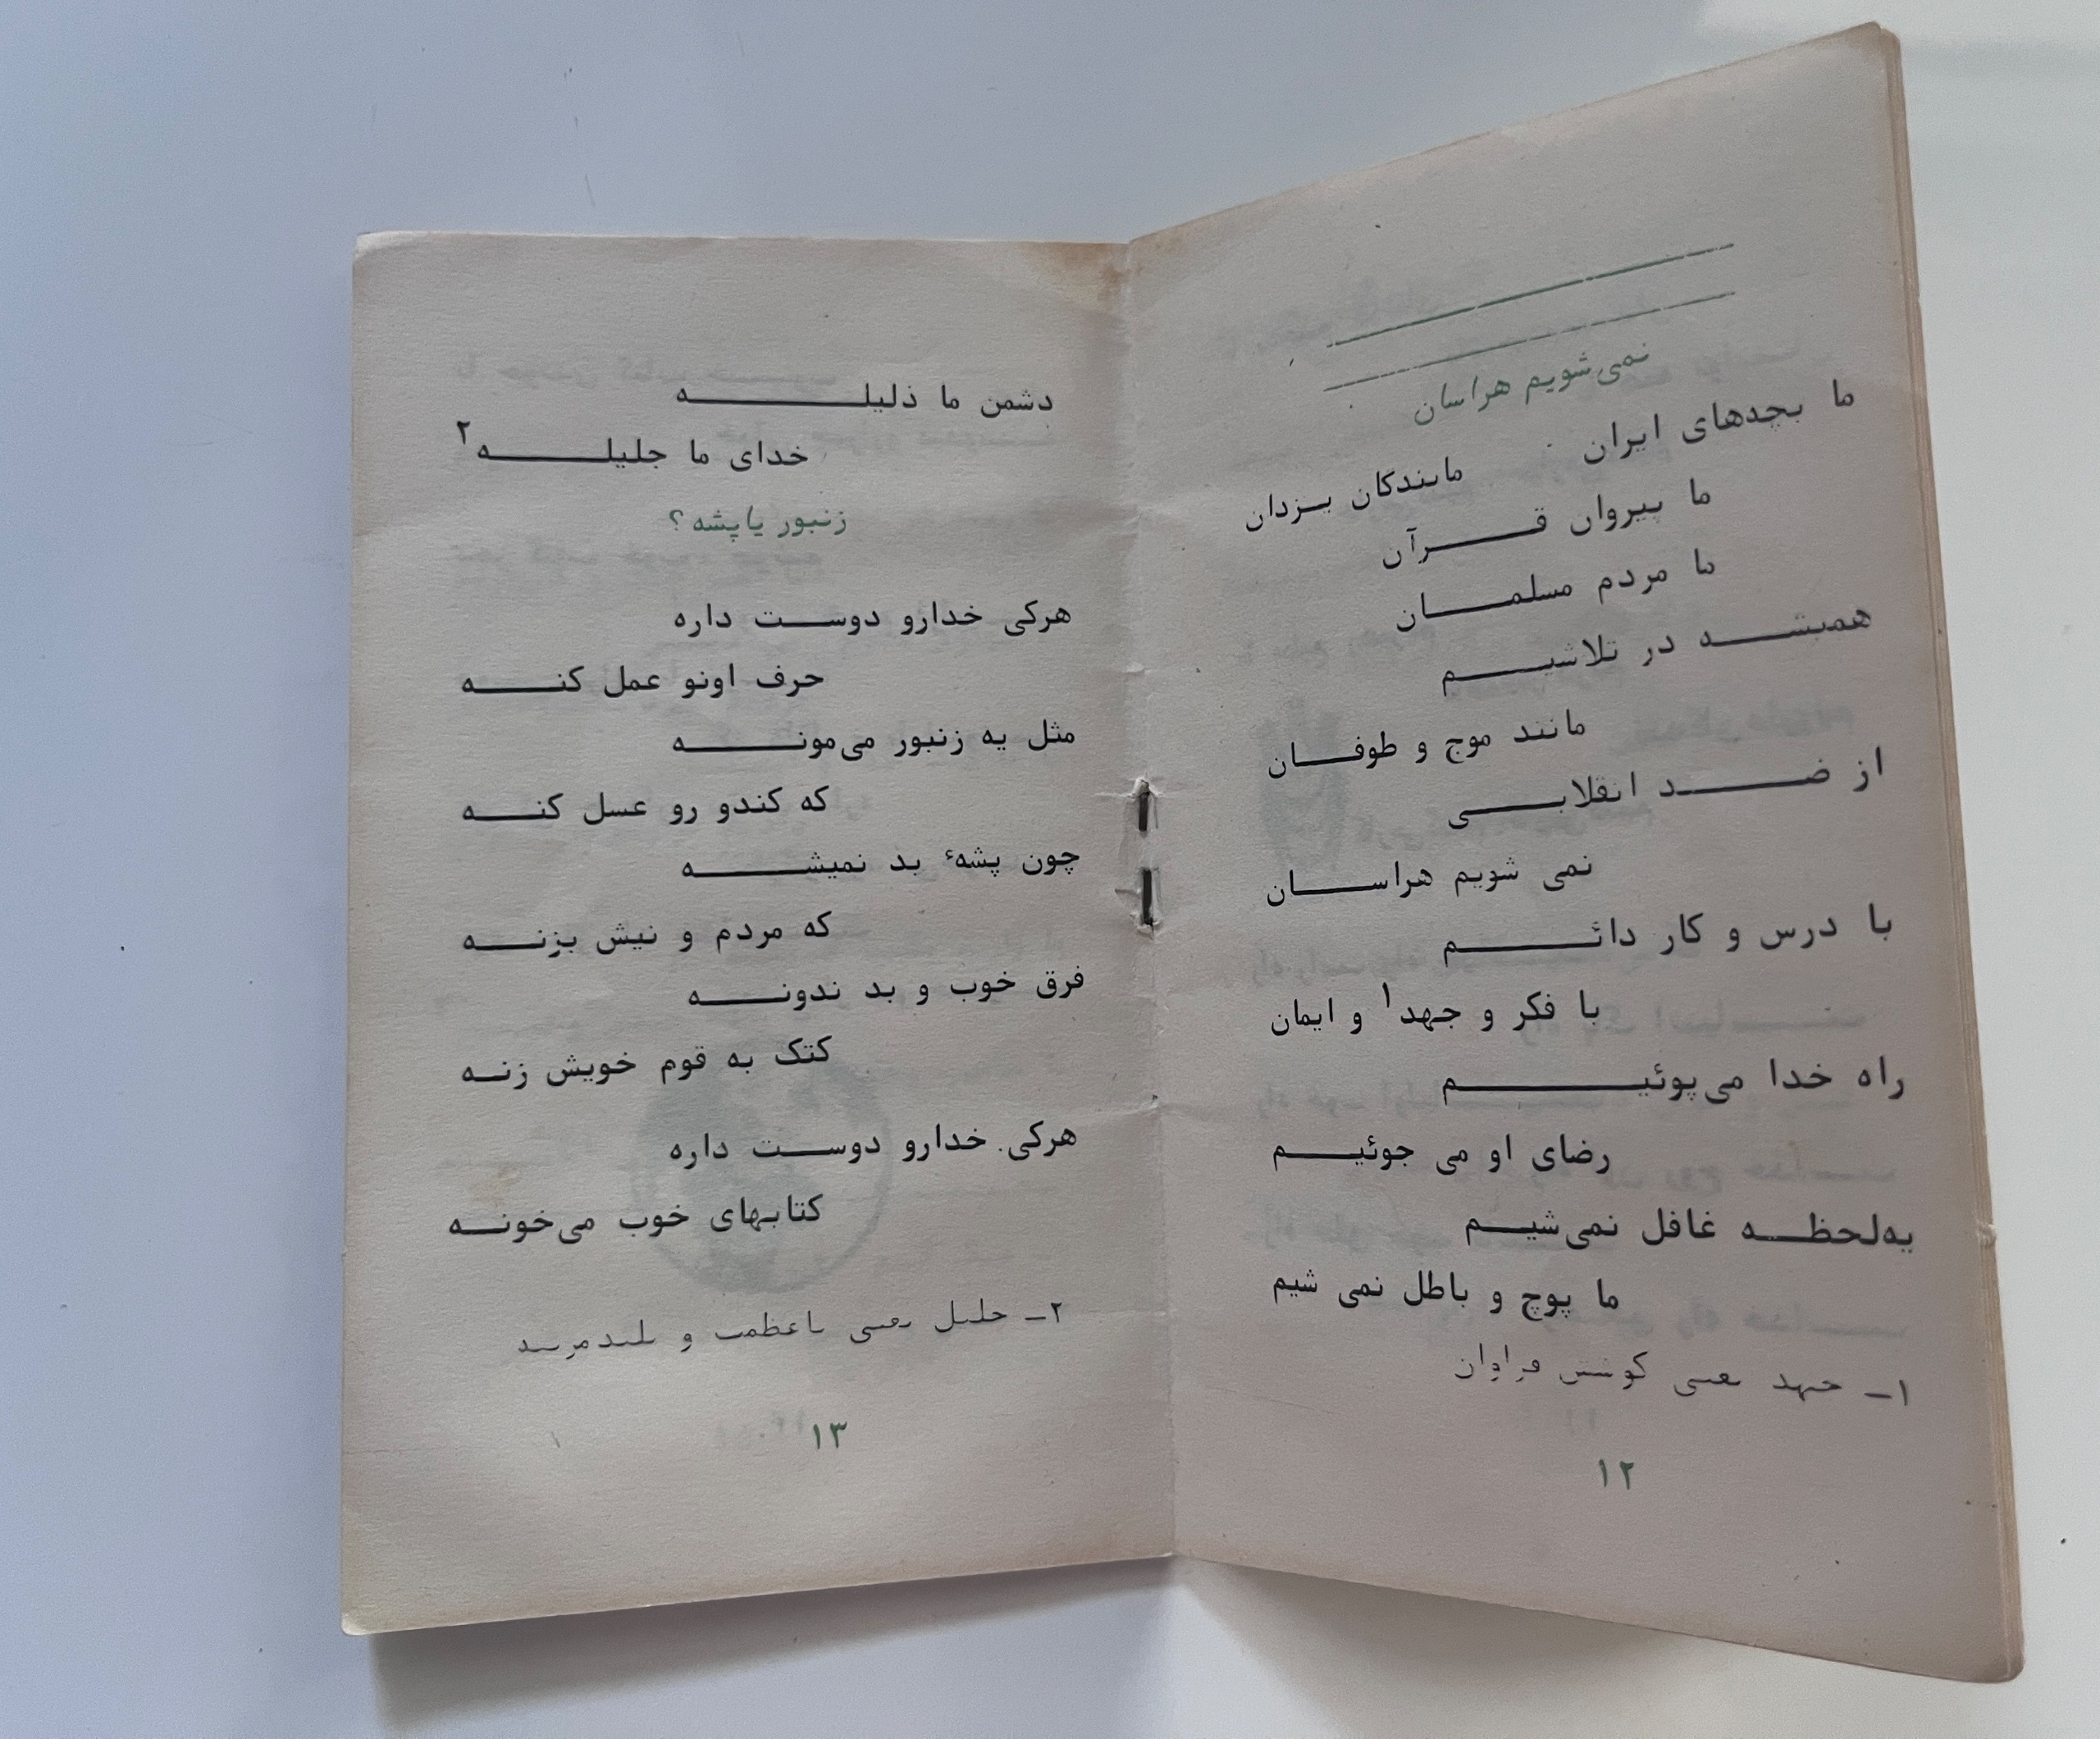 نمی‌شویم هراسان
ما بچه‌های ایران
ما بندگان یزدان
ما پیروان قرآن
ما مردم مسلمان
همیشه در تلاشیم
مانند موج و طوفان
از ضد انقلابی
نمی شویم هراسان
با درس و کار دائم
با فکر و جهد۱ و ایمان
راه خدا می‌پوئیم
رضای او می جوئیم
یه‌لحظه غافل نمی‌شیم
ما پوچ و باطل نمی شیم
۱ـ جهد یعنی کوشش فراوان
۱۲
دشمن ما ذلیله
خدای ما جلیله۲
زنبور یا پشه؟
هرکی خدارو دوست داره
حرف اونو عمل کنه
مثل یه زنبور می‌مونه
که کندو رو عسل کنه
چون پشهٔ بد نمیشه
که مردم و نیش بزنه
فرق خوب و بد ندونه
کتک به قوم خویش زنه
هرکی خدارو دوست داره
کتابهای خوب می‌خونه
۲ـ جلیل یعنی باعظمت و بلندمرتبه
۱۳